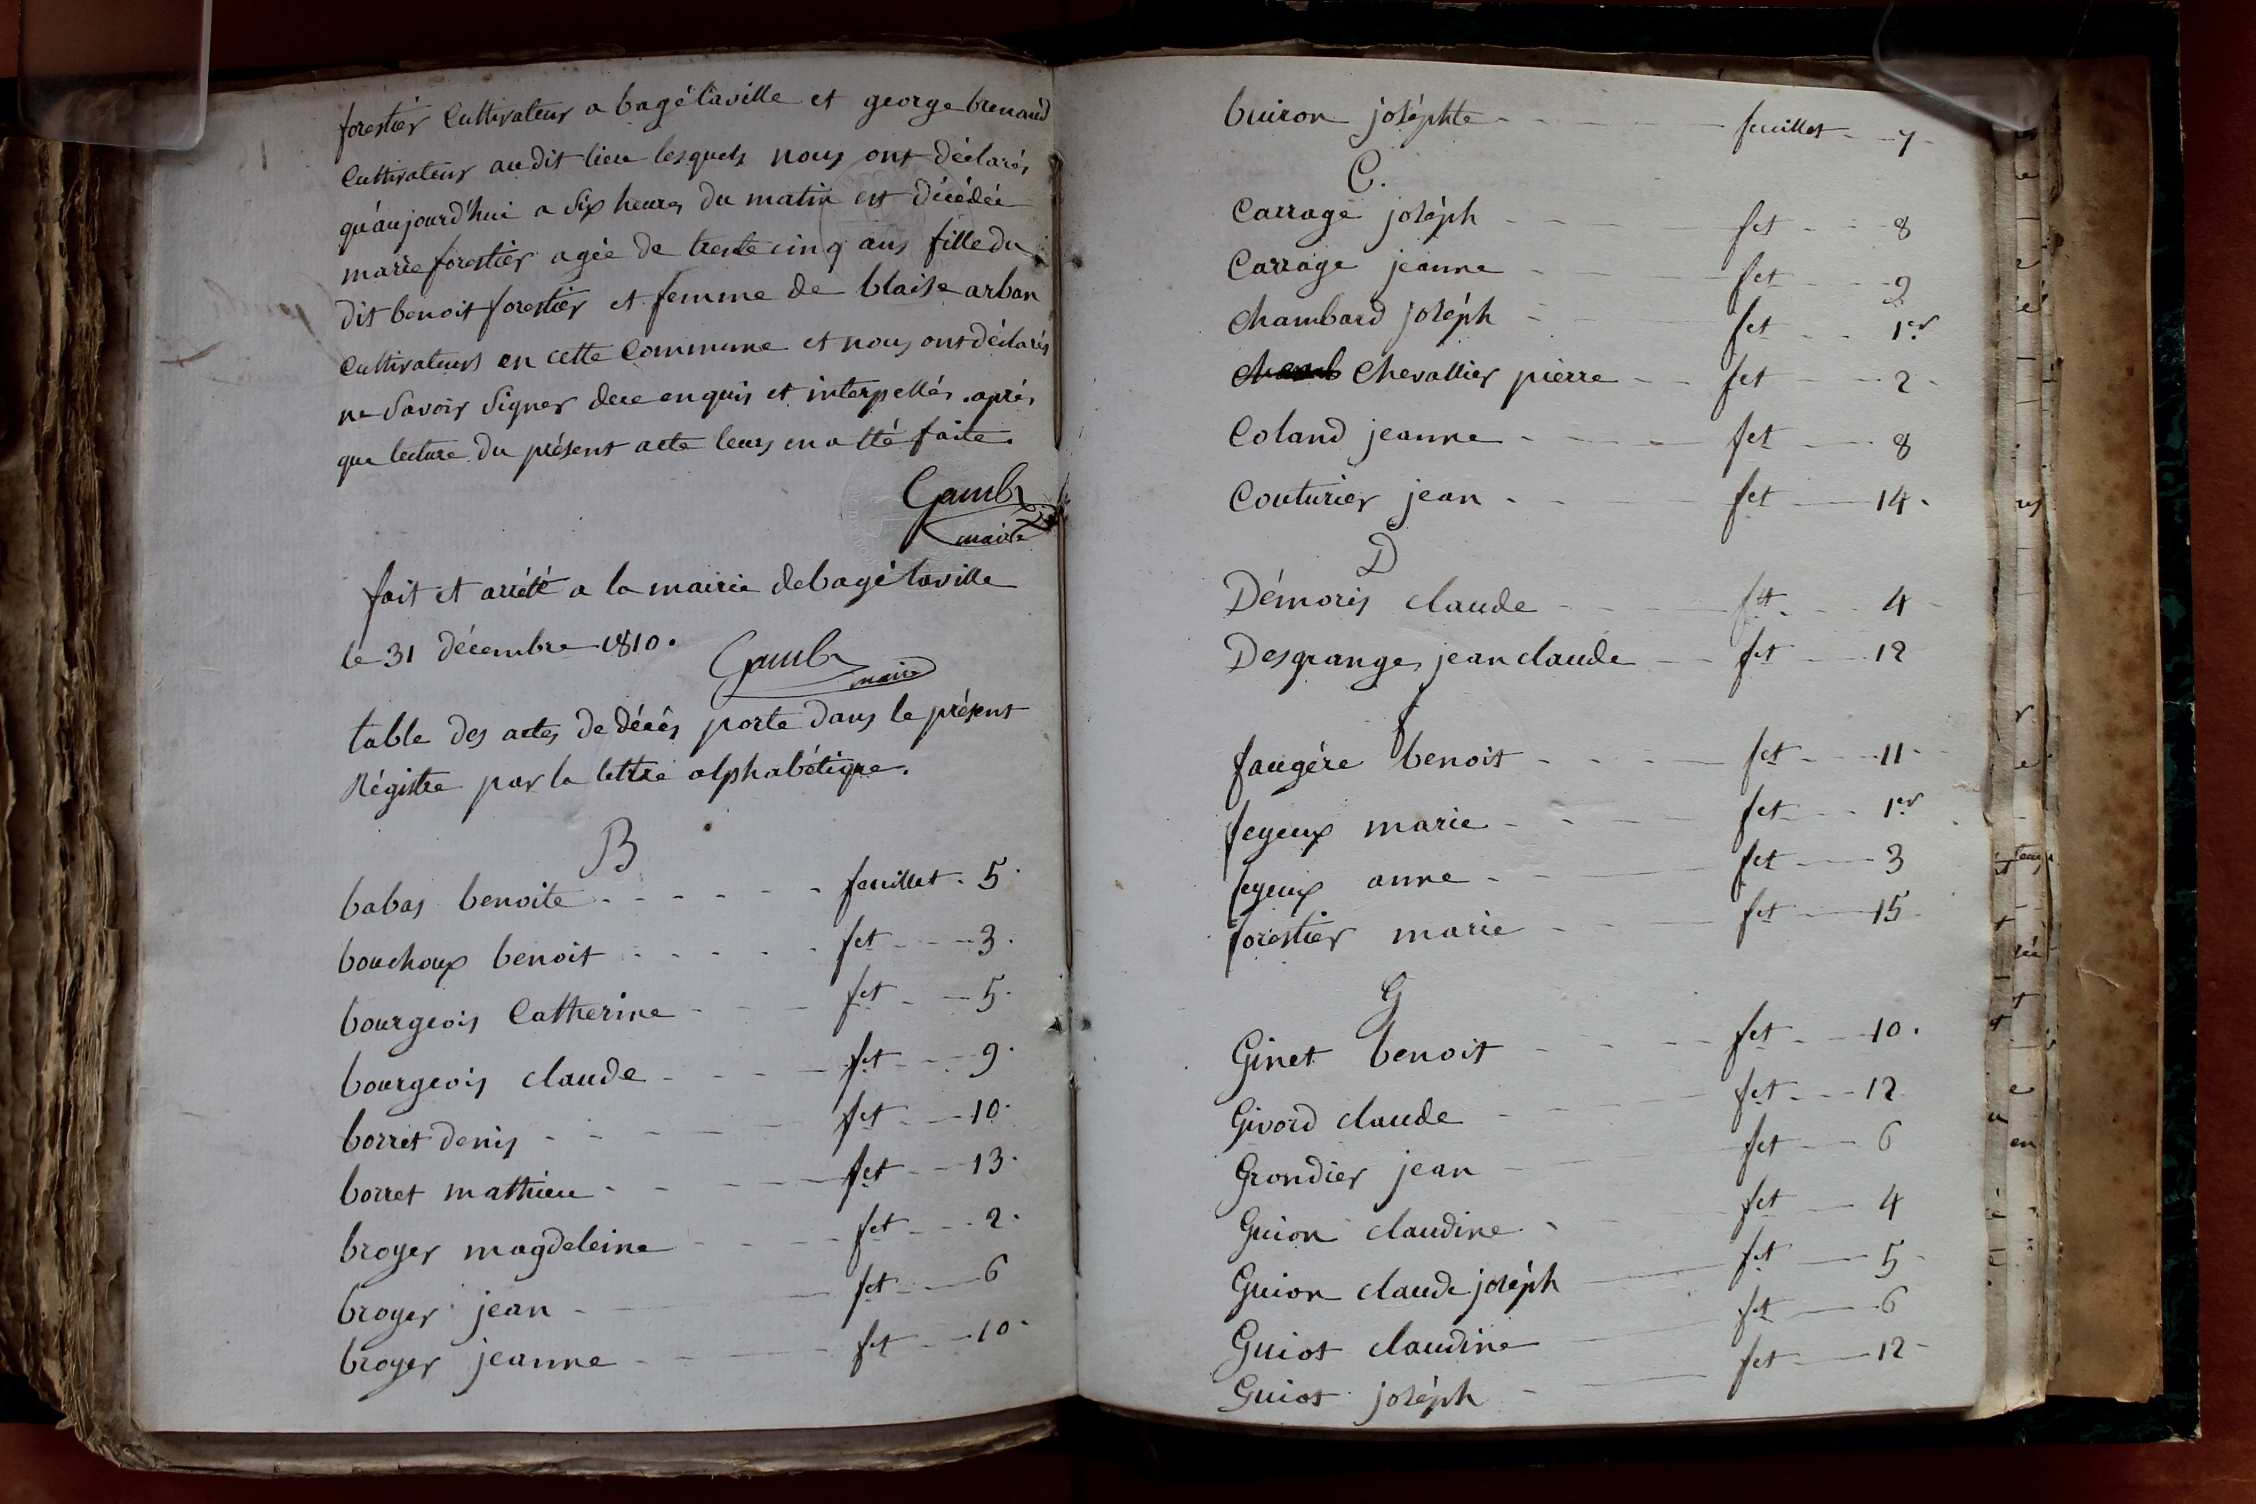 forestier Cultivateur a bagé laville et george brenaud
Cultivateur audit lieu lesquels nous ont déclarés
qu'aujourd'hui a six heures du matin est décédée
marie forestier agée de trente cinq ans fille du
dit benoit forestier et femme de blaise arban
Cultivateurs en cette Commune et nous ont déclarés
ne Savoir Signer de ce enquis et interpellés. aprés
que lecture du présent acte leurs en a été faite.
Gamb
maire
fait et arrété a la mairie de bagé laville
le 31 décembre 1810.
Gamb
maire
table des actes de décès porte dans le présent
Régistre par la lettre alphabétique.
B
babas benoite - - - - - feuillet - 5.
bouchoux benoit - - - - - fet - - - 3.
bourgeois Catherine - - - fet - - 5.
bourgeois claude - - - - fet - - 9.
borret denis - - - - - fet - - 10.
borret mathieu - - - - fet - - 13.
broyer magdeleine - - - - fet - - 2.
broyer jean - - - fet - - 6
broyer jeanne - - - - fet - - 10.
buiron joséphte - - - - - feuillet - - 7 -
C.
Carrage joséph - - - fet - - 8
Carrage jeanne - - fet - - 9
Chambard joséph - - fet - - 1er
Chevallier pierre - - fet - - 2 -
Coland jeanne - - - fet - - 8
Couturier jean - - - fet - - 14 -
D
Démoris claude - - - ftt - - 4 -
Desgranges jean claude - - fet - - 12
f
faugére benoit - - - - fet - - 11 -
feyeux marie - - - - fet - - 1er
feyeux anne - - - fet - - 3
forestier marie - - - fet - - 15
G
Ginet benoit - - - - fet - - 10.
Givord claude - - - - fet - - 12
Grondier jean - - - fet - - 6
Guion claudine - - - fet - - 4
Guion claude joséph - - fet - - 5 -
Guiot claudine - - fet - - 6
Guiot joséph - - - fet - - 12 -